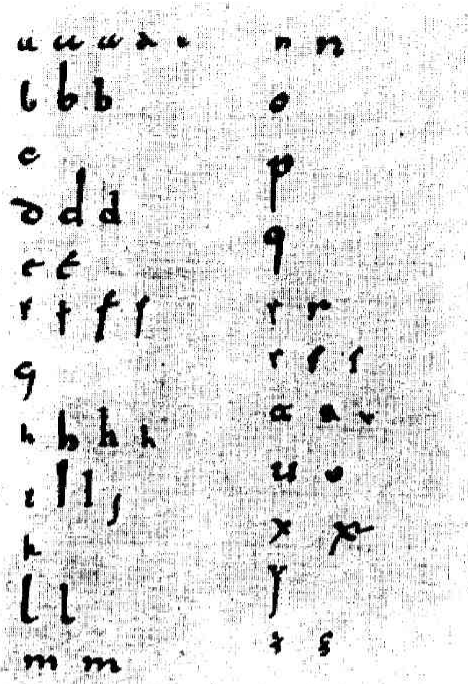 a a a a a
b b b
c
d d d
e e
f f f f
g
h h h h
i I I j
k
l l
m m
n n
o
p
q
r r
r ſ ſ
u v
x x
y
z z